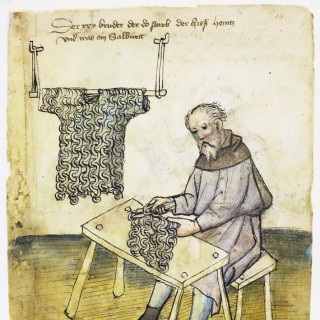 Der xxv bruder der do starb der hieß Heintz
und was ein Salburtt